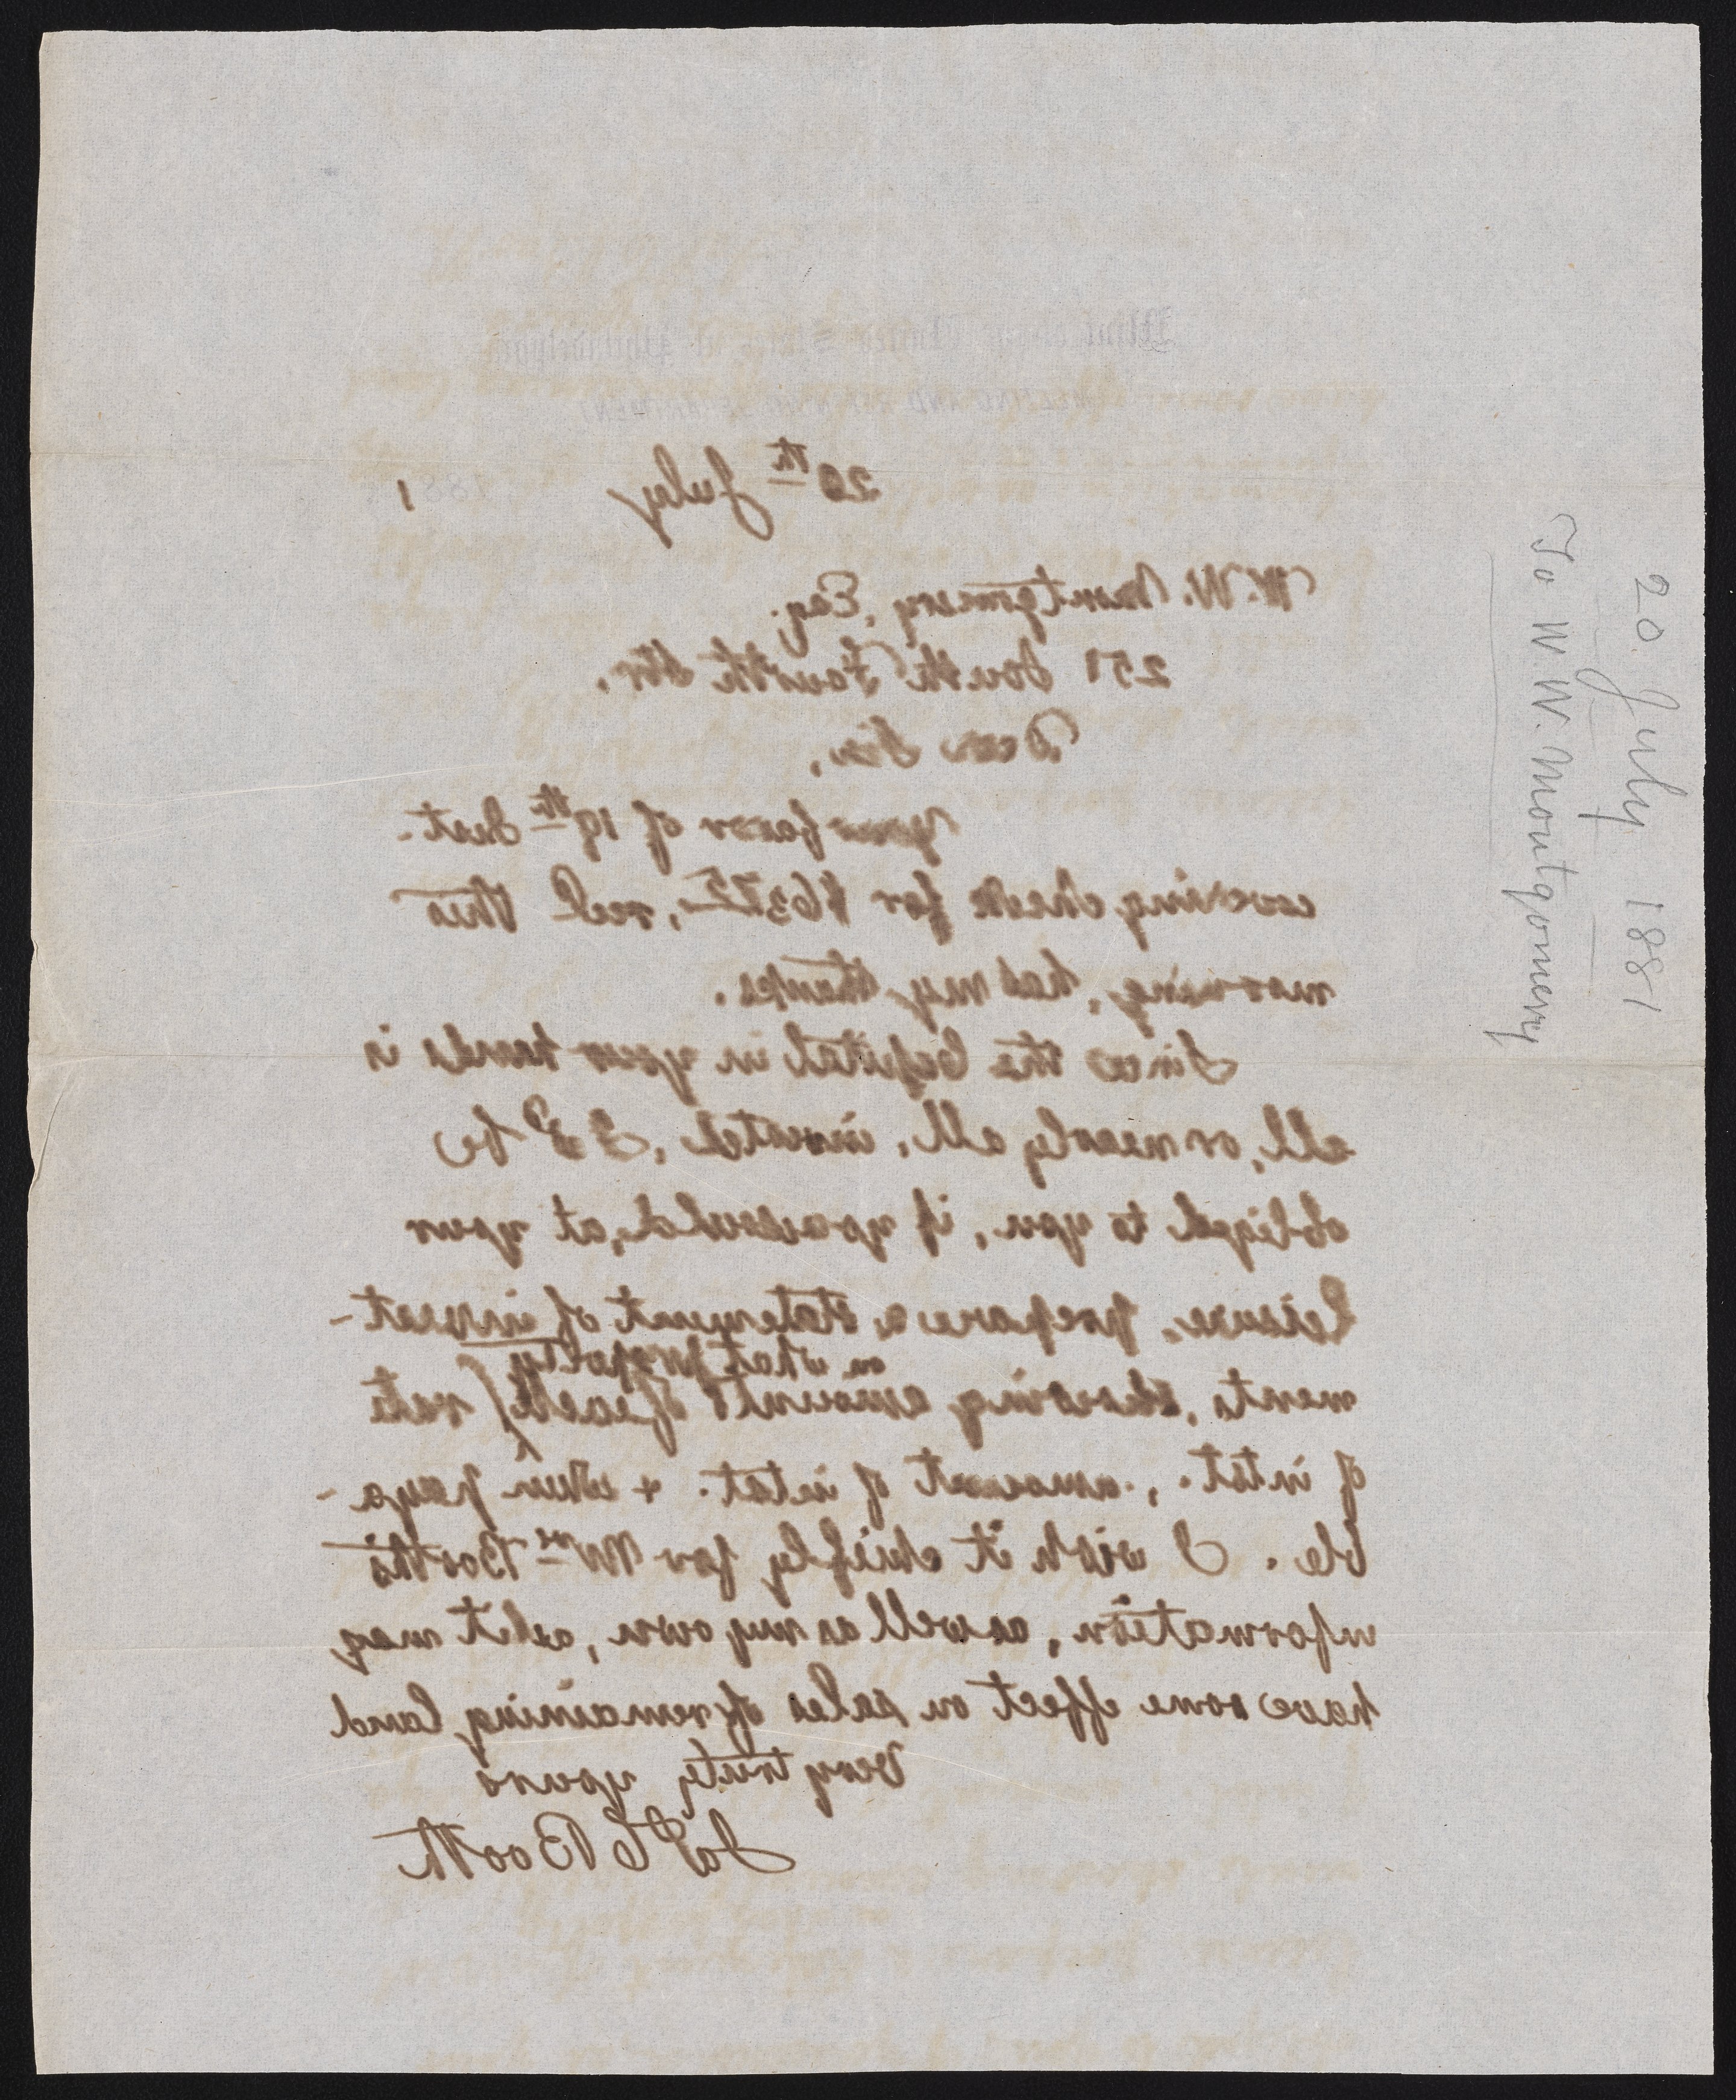 Mint of the United States at Philadelphia
MELTING AND REFINING DEPARTMENT
20th July 1881
W. W. Montgomery, Esq.
251 South Fourth Str.
Dear Sir,
Your favor of 19th Inst.
covering check for recd this
morning, has my thanks.
Since the Capital in your hands is
all, or nearly all, invested, I'd be
obliged to you, if you would, at your
leisure, prepare a statement of invest-
on what property
ments, showing amounts of each, rate
of intst., amount of intst. + when paya-
ble. I wish it chiefly for Mrs Booth's
information, as well as my own, as it may
have some effect on sales of remaining land
Very truly yours
Jas C Booth
20 July 1881
To W. W. Montgomery